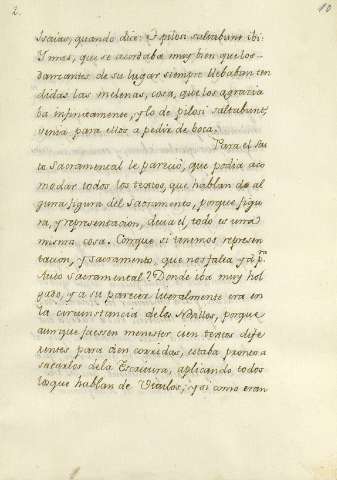 2.
10
Isaias, quando dice: Et pilosi saltabunt ibi.
Y mas, que se acordaba muy bien que los
danzantes de su lugar siempre llebaban ten
didas las melenas, cosa, que los agracia
ba infinitamente, y lo de pilosi saltabunt,
venia para ellos a pedir de boca.
Para el Au
to Sacramental le pareciò, que podia aco
modar todos los textos, que hablan de al
guna figura del Sacramento, porque figu
ra, y representacion, decia el, todo es una
misma cosa. Conque si tenemos represen
tacion, y sacramento, que nos falta ya pa.
Auto Sacramental? Donde iba muy hol
gado, y a su parecer literalmente era en
la circunstancia de los Novillos, porque
aunque fuessen menester cien textos dife
rentes para cien corridas, estaba pronto a
sacarlos dela Escritura, aplicando todos
los que hablan de Vitulos, y asi como eran